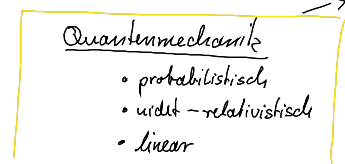 Quantenmechanik
• probabilistisch
• nicht-relativistisch
• linear